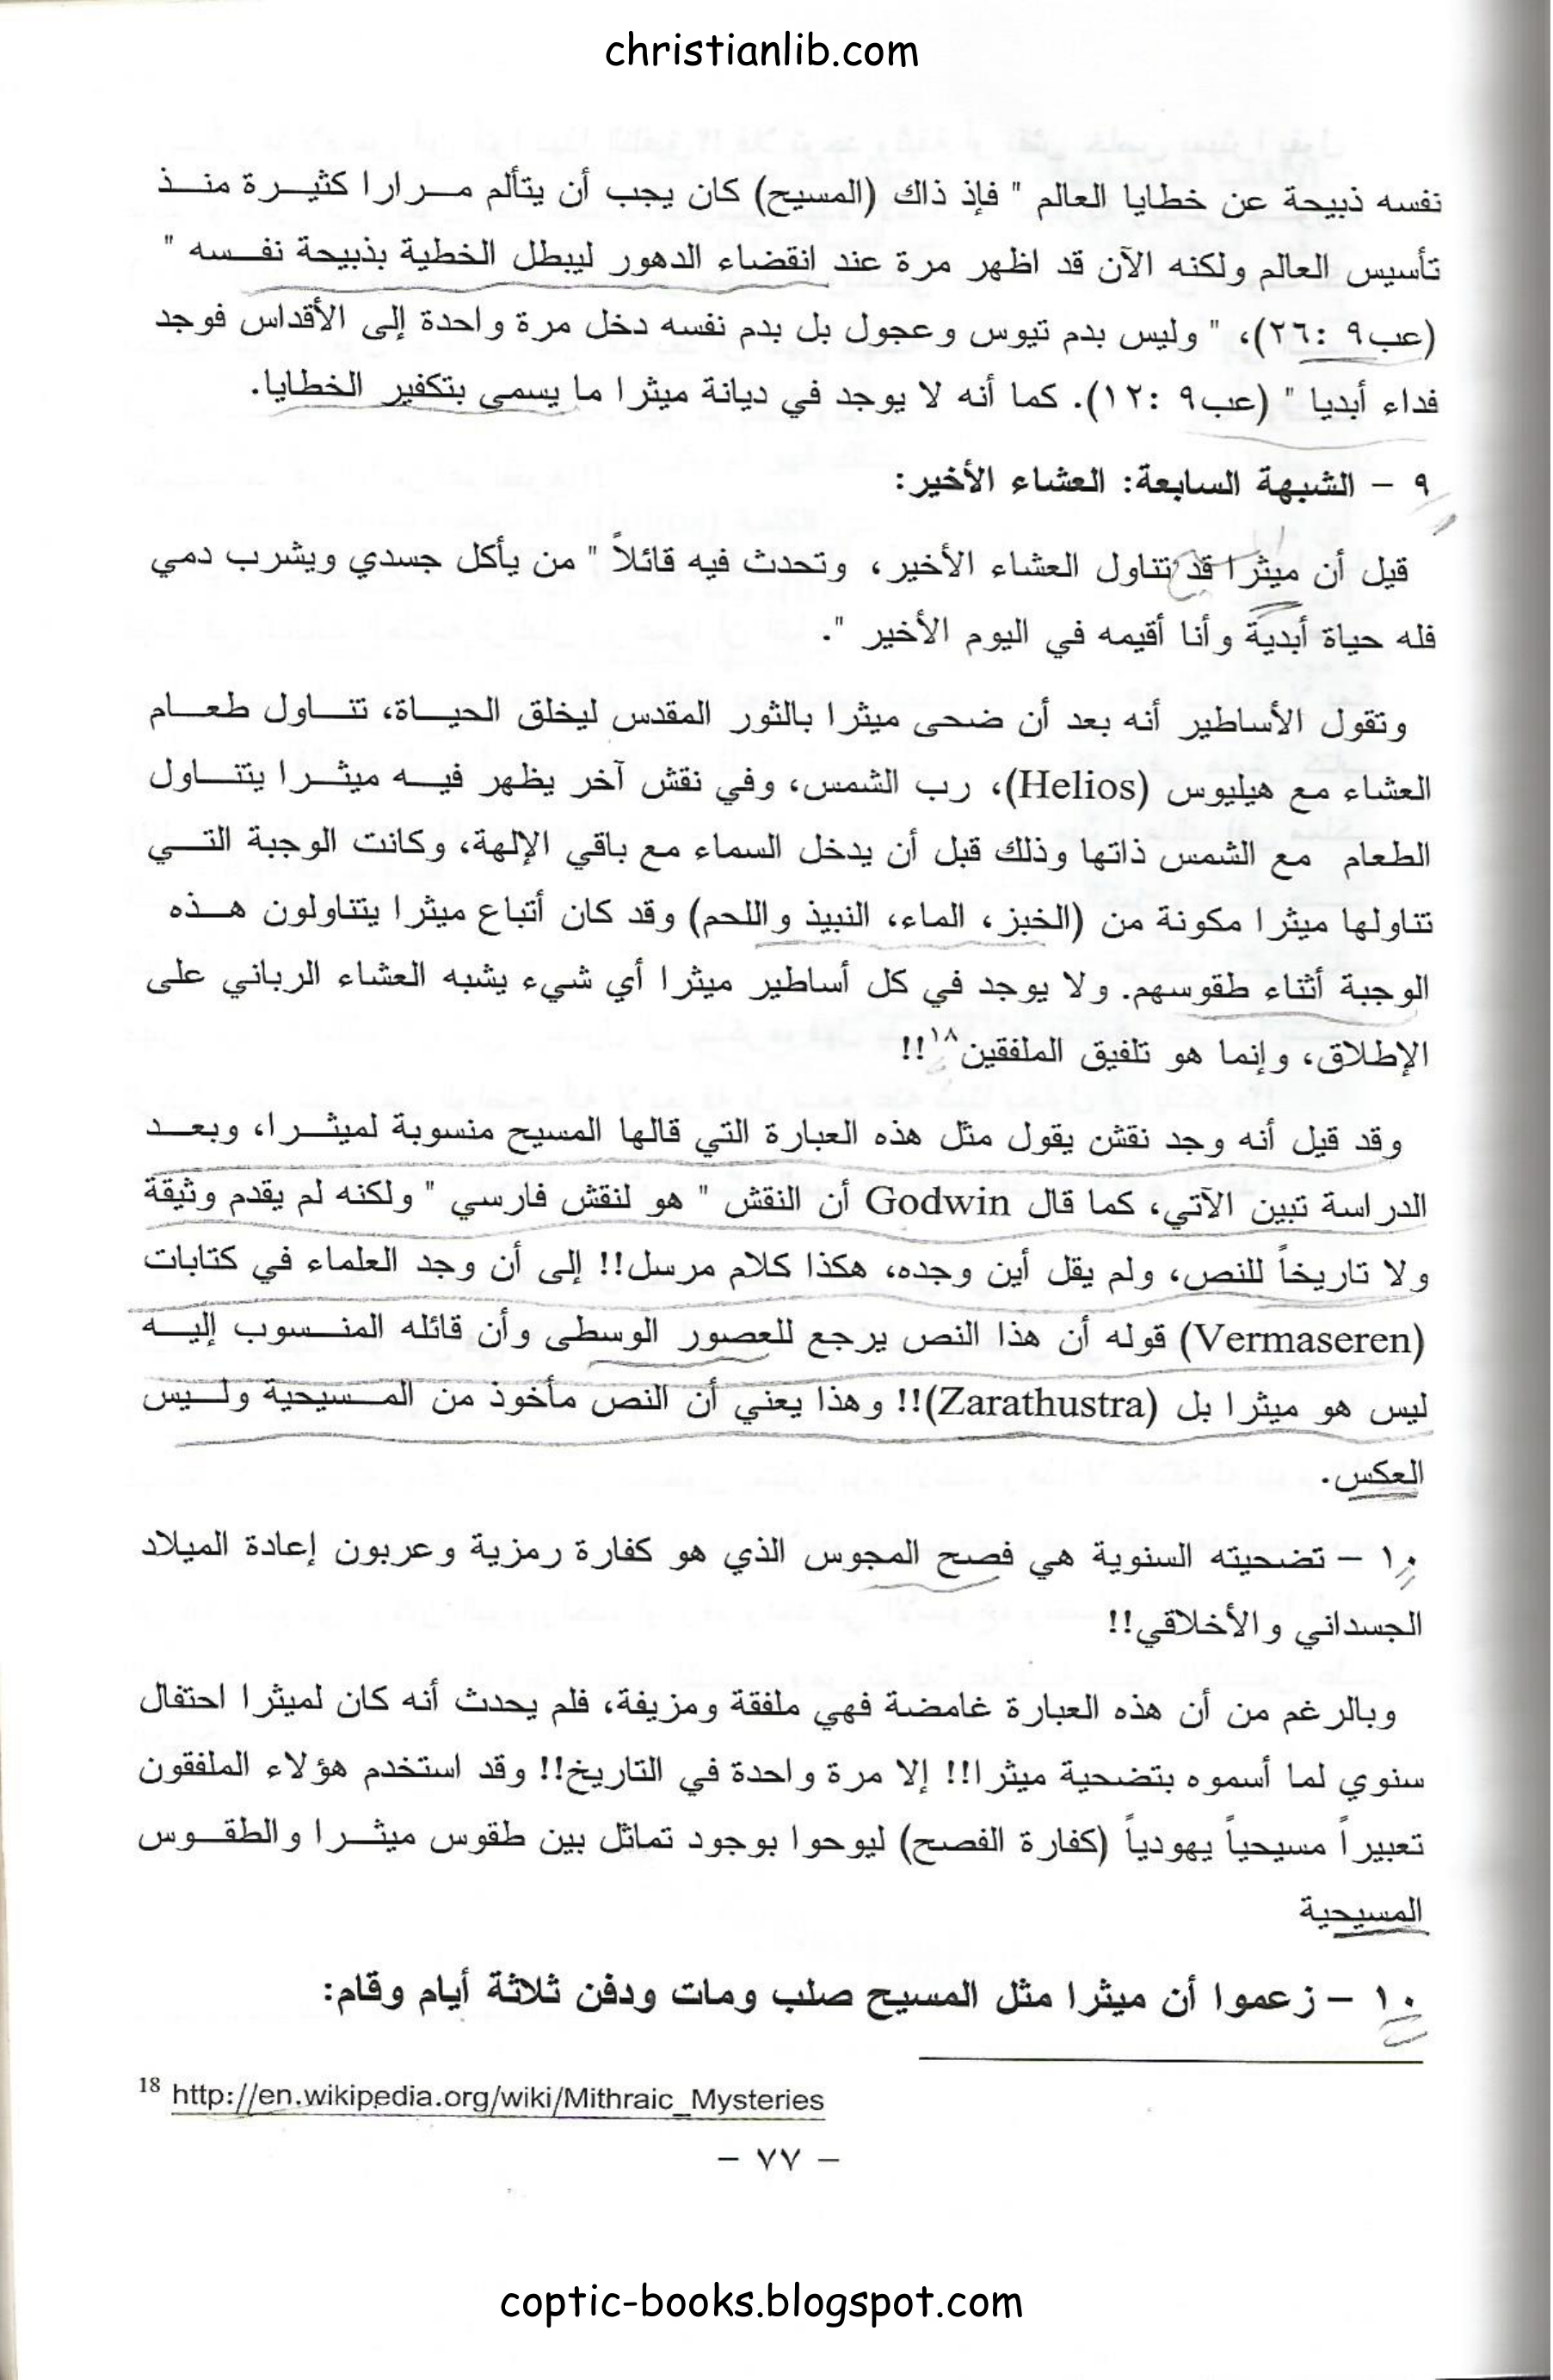 christianlib.com
نفسه ذبيحة عن خطايا العالم " فإذ ذاك (المسيح) كان يجب أن يتألم مرارا كثيرة منذ
تأسيس العالم ولكنه الآن قد اظهر مرة عند انقضاء الدهور ليبطل الخطية بذبيحة نفسه "
(عب٩ :٢٦)، " وليس بدم تيوس وعجول بل بدم نفسه دخل مرة واحدة إلى الأقداس فوجد
فداء أبديا " (عب٩ :١٢). كما أنه لا يوجد في ديانة ميثرا ما يسمى بتكفير الخطايا.
٩ – الشبهة السابعة: العشاء الأخير:
قيل أن ميثرا قد تناول العشاء الأخير، وتحدث فيه قائلاً " من يأكل جسدي ويشرب دمي
فله حياة أبدية وأنا أقيمه في اليوم الأخير ".
وتقول الأساطير أنه بعد أن ضحى ميثرا بالثور المقدس ليخلق الحياة، تناول طعام
العشاء مع هيليوس (Helios)، رب الشمس، وفي نقش آخر يظهر فيه ميثرا يتناول
الطعام مع الشمس ذاتها وذلك قبل أن يدخل السماء مع باقي الإلهة، وكانت الوجبة التي
تناولها ميثرا مكونة من (الخبز، الماء، النبيذ واللحم) وقد كان أتباع ميثرا يتناولون هذه
الوجبة أثناء طقوسهم. ولا يوجد في كل أساطير ميثرا أي شيء يشبه العشاء الرباني على
الإطلاق، وإنما هو تلفيق الملفقين١٨!!
وقد قيل أنه وجد نقش يقول مثل هذه العبارة التي قالها المسيح منسوبة لميثرا، وبعد
الدراسة تبين الآتي، كما قال Godwin أن النقش " هو لنقش فارسي " ولكنه لم يقدم وثيقة
ولا تاريخاً للنص، ولم يقل أين وجده، هكذا كلام مرسل!! إلى أن وجد العلماء في كتابات
(Vermaseren) قوله أن هذا النص يرجع للعصور الوسطى وأن قائله المنسوب إليه
ليس هو ميثرا بل (Zarathustra)!! وهذا يعني أن النص مأخوذ من المسيحية وليس
العكس.
١٠ – تضحيته السنوية هي فصح المجوس الذي هو كفارة رمزية وعربون إعادة الميلاد
الجسداني والأخلاقي!!
وبالرغم من أن هذه العبارة غامضة فهي ملفقة ومزيفة، فلم يحدث أنه كان لميثرا احتفال
سنوي لما أسموه بتضحية ميثرا!! إلا مرة واحدة في التاريخ!! وقد استخدم هؤلاء الملفقون
تعبيراً مسيحياً يهودياً (كفارة الفصح) ليوحوا بوجود تماثل بين طقوس ميثرا والطقوس
المسيحية
١٠ – زعموا أن ميثرا مثل المسيح صلب ومات ودفن ثلاثة أيام وقام:
18 http://en.wikipedia.org/wiki/Mithraic_Mysteries
– ٧٧ –
coptic-books.blogspot.com